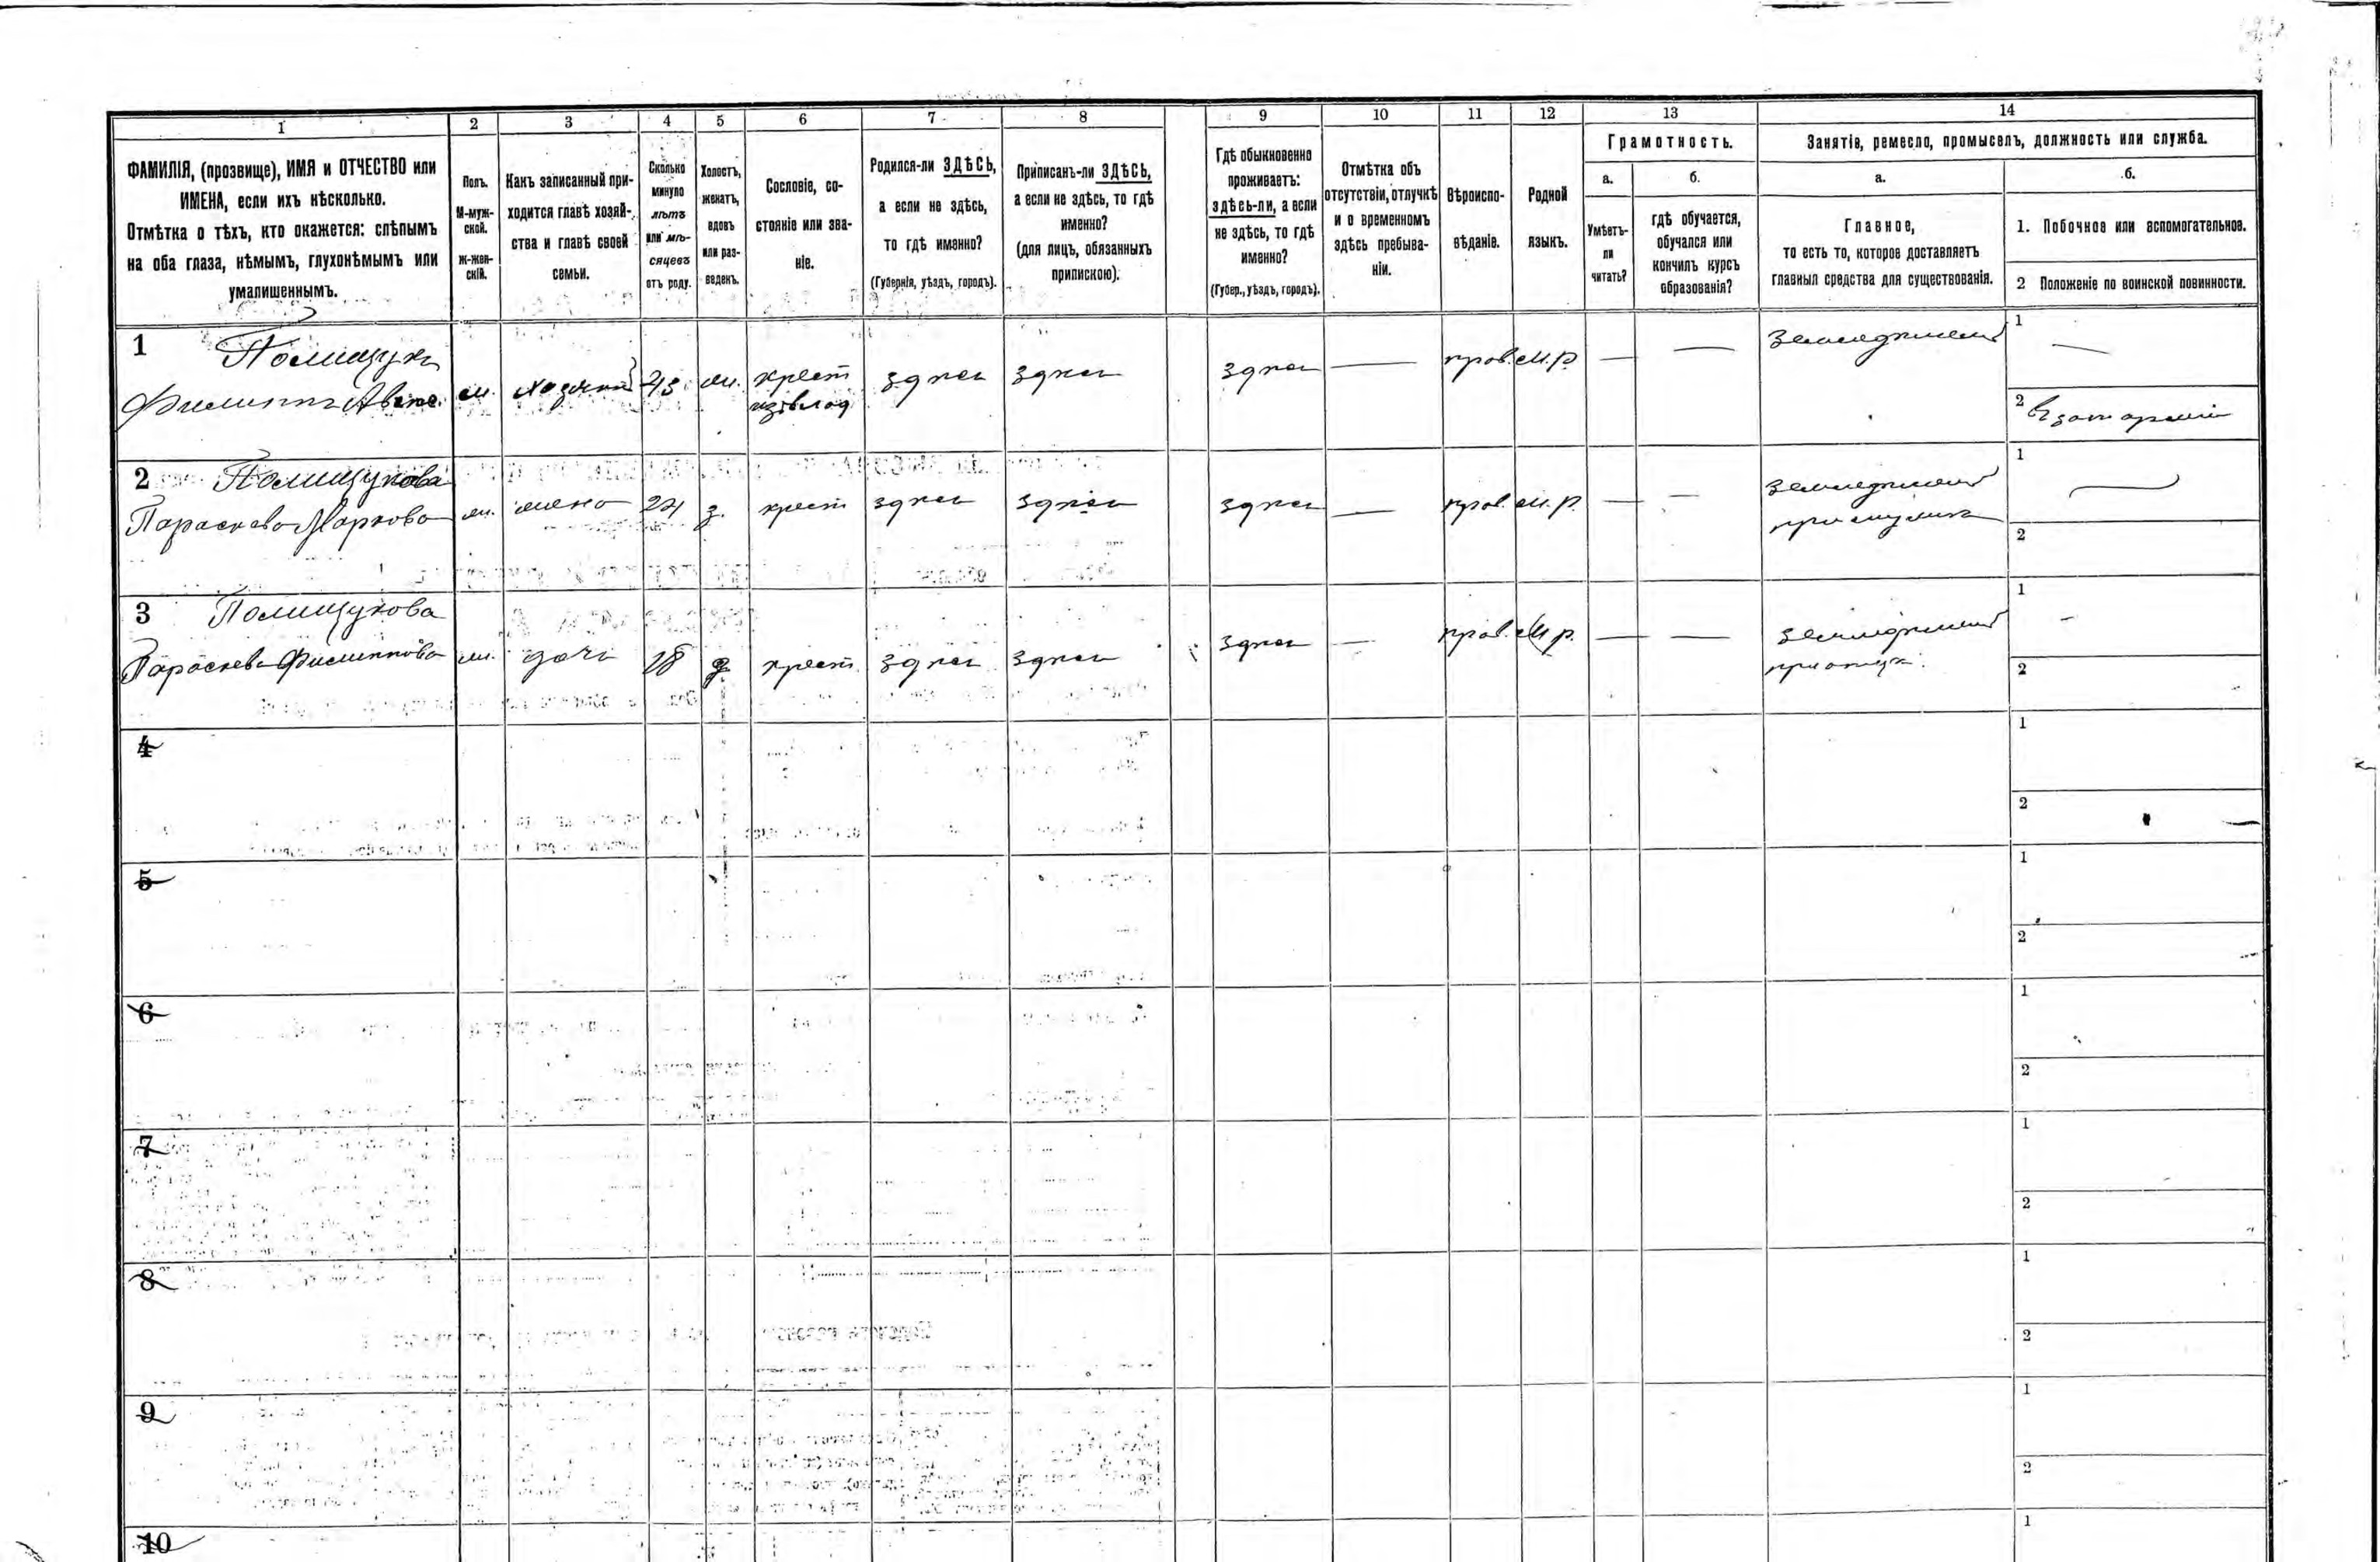 1 2 3 4 5 6 7 8 9 10 11 12 13 14
ФАМИЛІЯ, (прозвище), ИМЯ и ОТЧЕСТВО или
ИМЕНА, если ихъ нѣсколько.
Отмѣтка о тѣхъ, кто окажется: слѣпымъ
на оба глаза, нѣмымъ, глухонѣмымъ или
умалишеннымъ.
Полъ.
М-муж-
ской.
ж-жен-
скій.
Какъ записанный при-
ходится главѣ хозяй-
ства и главѣ своей
семьи.
Сколько
минуло
лѣтъ
или мѣ-
сяцевъ
отъ роду.
Холостъ,
женатъ,
вдовъ
или раз-
веденъ.
Сословіе, со-
стояніе или зва-
ніе.
Родился-ли ЗДѢСЬ,
а если не здѣсь,
то гдѣ именно?
(Губернія, уѣздъ, городъ).
Приписанъ-ли ЗДѢСЬ,
а если не здѣсь, то гдѣ
именно?
(для лицъ, обязанныхъ
припискою).
Гдѣ обыкновенно
проживаетъ:
здѣсь-ли, а если
не здѣсь, то гдѣ
именно?
(Губер., уѣздъ, городъ).
Отмѣтка объ
отсутствіи, отлучкѣ
и о временномъ
здѣсь пребыва-
ніи.
Вѣроиспо-
вѣданіе.
Родной
языкъ.
Грамотность.
а.
Умѣетъ-
ли
читать?
б.
гдѣ обучается,
обучался или
кончилъ курсъ
образованія?
Занятіе, ремесло, промыселъ, должность или служба.
а.
Главное,
то есть то, которое доставляетъ
главныя средства для существованія.
.б.
1. Побочное или вспомогательное.
2 Положеніе по воинской повинности.
1 Полищукъ
Филиппъ м. хозяинъ 43 ж. крест здѣсь здѣсь здѣсь — прав. м.р. — — земледѣлецъ 1 —
из влад
2
2 Полищукова
Параскева Маркова ж. жена з. крест здѣсь здѣсь здѣсь — прав. м.р. — — земледѣлец 1 —
при мужѣ
2
3 Полищукова
Параскева Филиппова ж. дочь 18 д крест здѣсь здѣсь здѣсь — прав. м.р. — — земледѣлец 1 —
при отцѣ
2
4 1
2
5 1
2
6 1
2
7 1
2
8 1
2
9 1
2
10 1